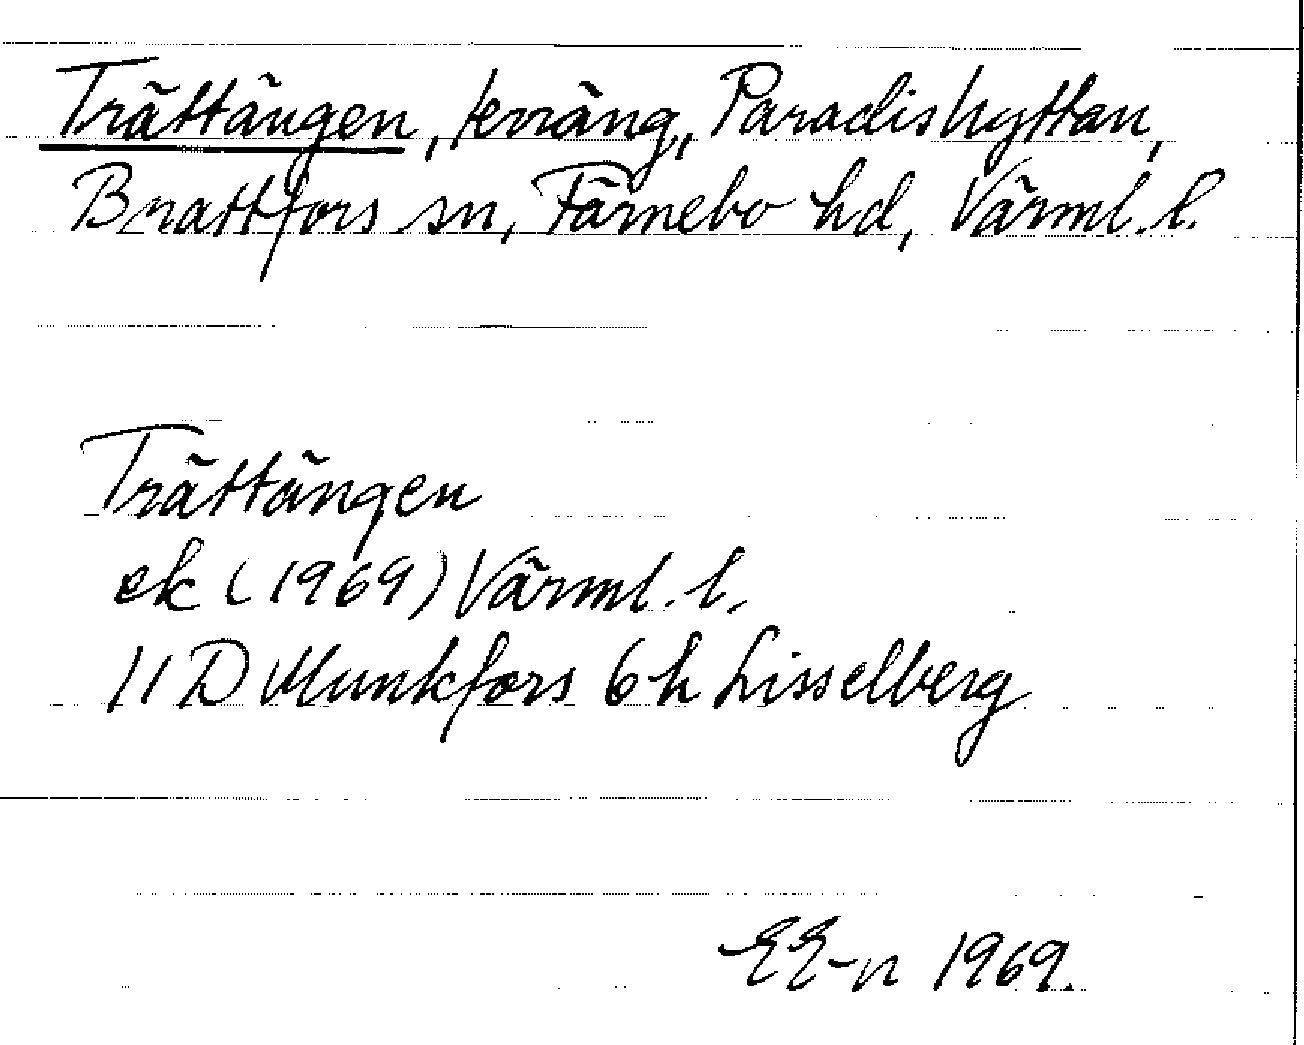 Trättängen, terräng, Paradishyttan,
Brattfors sn, Färnebo hd, Värml. l.
Trättängen
ek (1969) Värml. l.
11 D Munkfors 6 h Lisselberg
EE-n 1969.